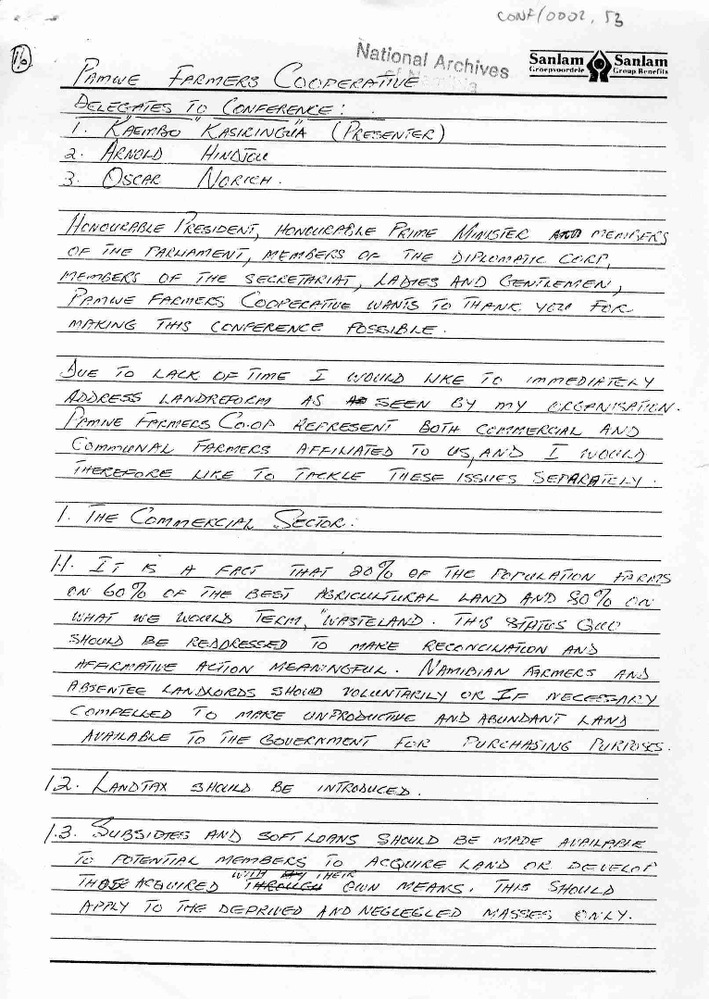 CONF/0002, 53
16
National Archives
of Namibia
Sanlam Sanlam
Groepvoordele Group Benefits
PAMWE FARMERS COOPERATIVE
DELEGATES TO CONFERENCE:
1. KAEMBO "KASIRINGUA (PRESENTER)
2. ARNOLD HINDJOU
3. OSCAR NORICH.
HONOURABLE PRESIDENT, HONOURABLE PRIME MINISTER AND MEMBERS
OF THE PARLIAMENT, MEMBERS OF THE DIPLOMATIC CORP,
MEMBERS OF THE SECRETARIAT, LADIES AND GENTLEMEN,
PAMWE FARMERS COOPERATIVE WANTS TO THANK YOU FOR
MAKING THIS CONFERENCE POSSIBLE.
DUE TO LACK OF TIME I WOULD LIKE TO IMMEDIATELY
ADDRESS LANDREFORM AS SEEN BY MY ORGANISATION.
PAMWE FARMERS CO-OP REPRESENT BOTH COMMERCIAL AND
COMMUNAL FARMERS AFFILIATED TO US, AND I WOULD
THEREFORE LIKE TO TACKLE THESE ISSUES SEPARATELY.
1. THE COMMERCIAL SECTOR.
1.1. IT IS A FACT THAT 20% OF THE POPULATION FARMS
ON 60% OF THE BEST AGRICULTURAL LAND AND 80% ON
WHAT WE WOULD TERM, "WASTELAND. THIS STATUS QUO
SHOULD BE READDRESSED TO MAKE RECONCILIATION AND
AFFIRMATIVE ACTION MEANINGFUL. NAMIBIAN FARMERS AND
ABSENTEE LANDLORDS SHOULD VOLUNTARILY OR IF NECESSARY
COMPELLED TO MAKE UNPRODUCTIVE AND ABUNDANT LAND
AVAILABLE TO THE GOVERNMENT FOR PURCHASING PURPOSES.
1.2. LANDTAX SHOULD BE INTRODUCED.
1.3. SUBSIDIES AND SOFT LOANS SHOULD BE MADE AVAILABLE
TO POTENTIAL MEMBERS TO ACQUIRE LAND OR DEVELOP
THOSE ACQUIRED WITH THEIR OWN MEANS. THIS SHOULD
APPLY TO THE DEPRIVED AND NEGLEGLED MASSES ONLY.